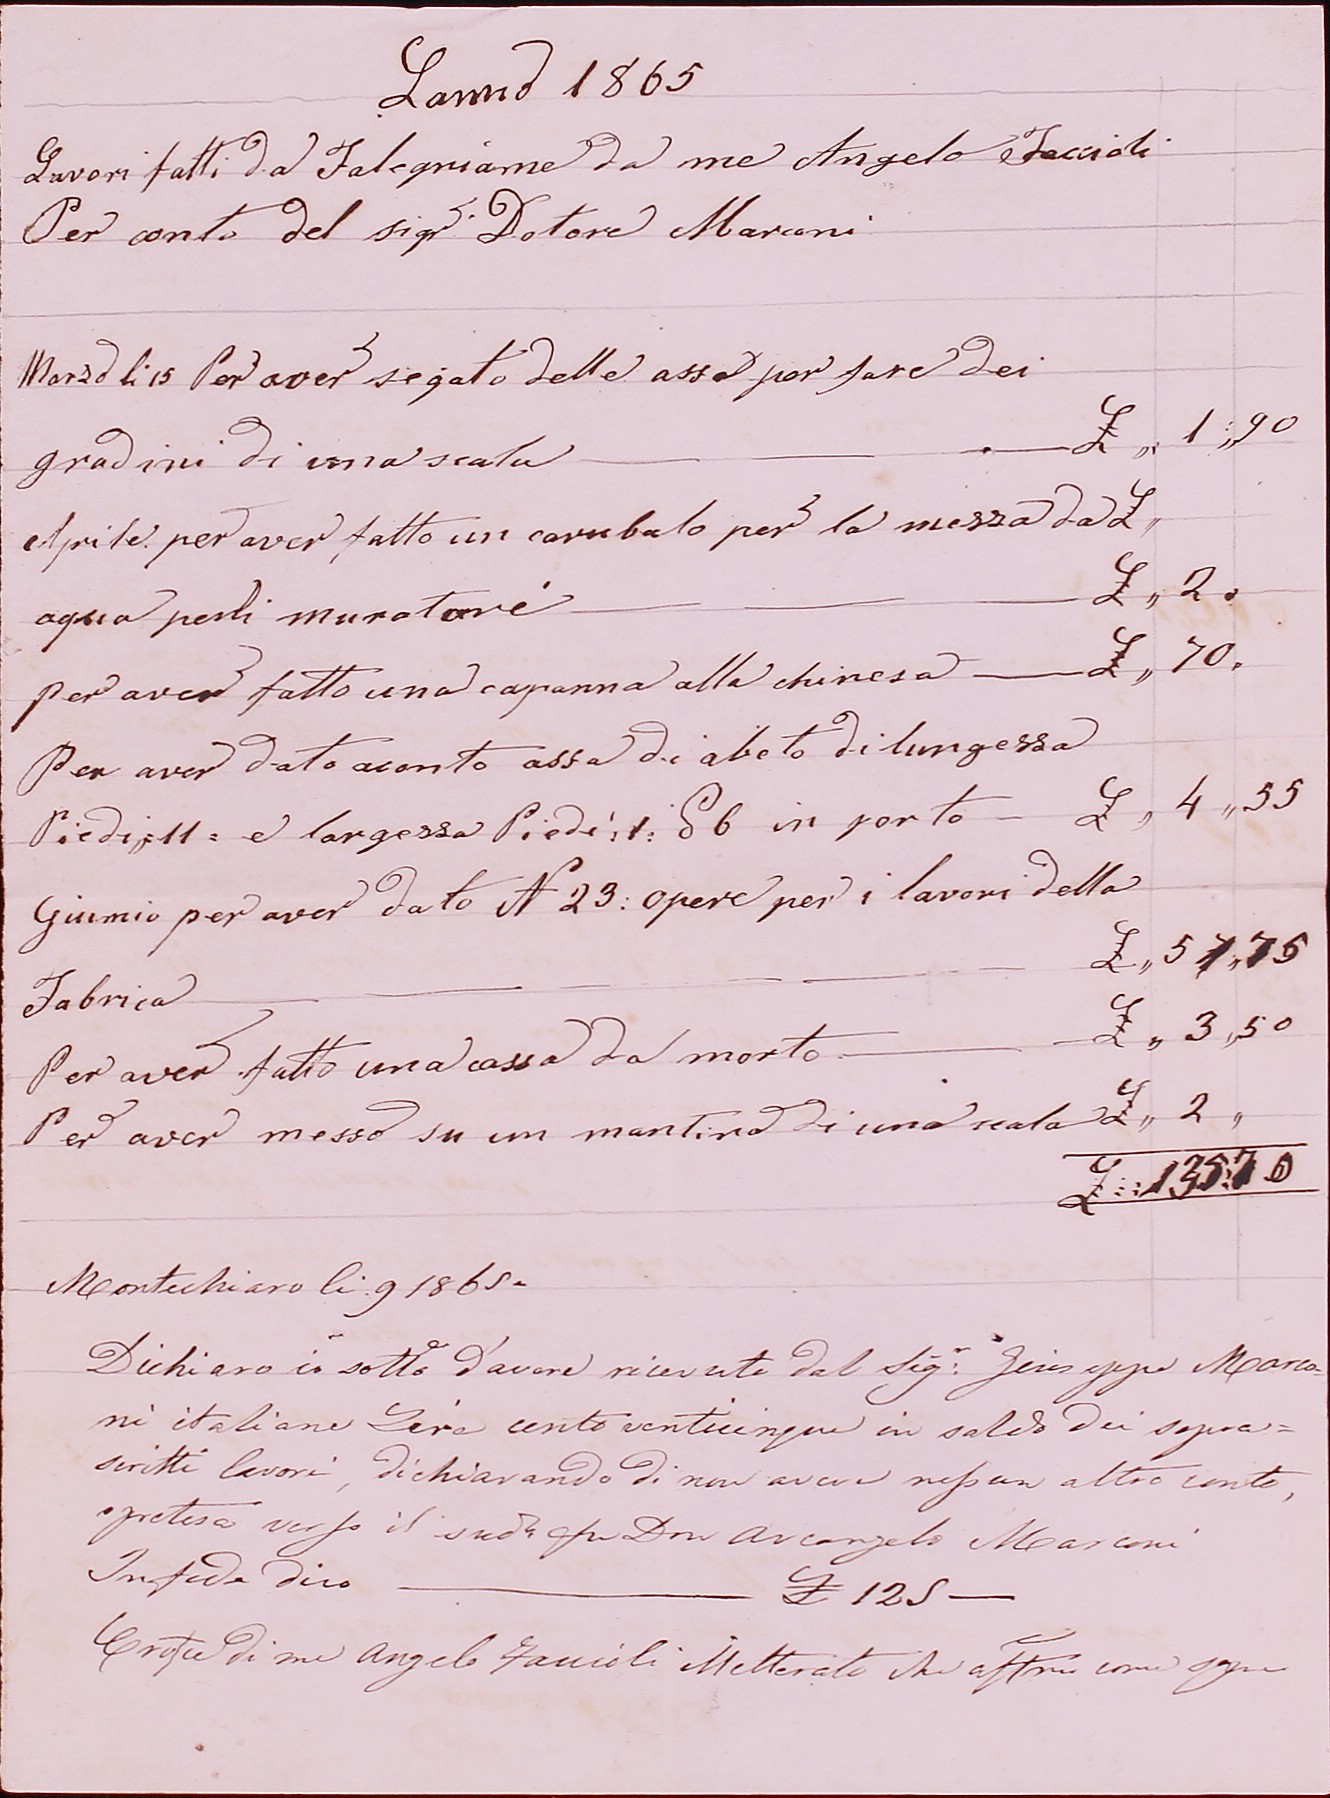 Lanno 1865
Lavori fatti da Falegniame da me Angelo Faccioli
Per conto del sigr. Dotore Marconi
Marzo li 15 Per aver segato delle asse per fare dei
gradini di una scala £ „ 1 „ 90
Aprile per aver fatto un carubalo per la mezza da £ „
aqua perli muratore £ „ 2 „
per aver fatto una capanna alla chinesa £ „ 70 „
Per aver dato aconto assa di abeto di lungezza
Piedi „ 11 = e largezza Piedi : 1 : 6 in porto £ „ 4 „ 55
Giumio per aver dato N 23 : opere per i lavori della
Fabrica £ „ 51 „ 75
Per aver fatto una cassa da morto £ „ 3 „ 50
Per aver messo su un mantino di una scala £ „ 2 „
£ : : 135 : 70
Montechiaro li 9 1865.
Dichiaro io sotto d'avere ricevute dal Sigr. Giuseppe Marco-
ni italiane Lire cento venticinque in saldo dei sopra=
scritti lavori, dichiarando di non avere nessun altro conto,
o pretesa verso il sudo. Don Arcangelo Marconi
In fede dico £ 125 —
Croce di me Angelo Faccioli illetterato che afferma come sopra